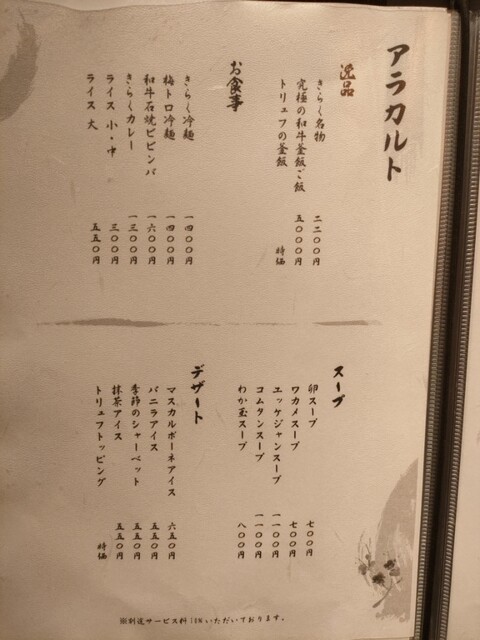 アラカルト
逸品
きらく名物
究極の和牛釜飯ご飯
トリュフの釜飯
二二〇〇円
五〇〇〇円
時価
お食事
きらく冷麺
梅トロ冷麺
和牛石焼ビビンバ
きらくカレー
ライス 小・中
ライス 大
一四〇〇円
一四〇〇円
一六〇〇円
一三〇〇円
三〇〇円
五五〇円
スープ
卵スープ
ワカメスープ
エッケジャンスープ
コムタンスープ
わか玉スープ
七〇〇円
七〇〇円
一一〇〇円
一一〇〇円
八〇〇円
デザート
マスカルポーネアイス
バニラアイス
季節のシャーベット
抹茶アイス
トリュフトッピング
六五〇円
五五〇円
五五〇円
五五〇円
時価
※別途サービス料10%いただいております。